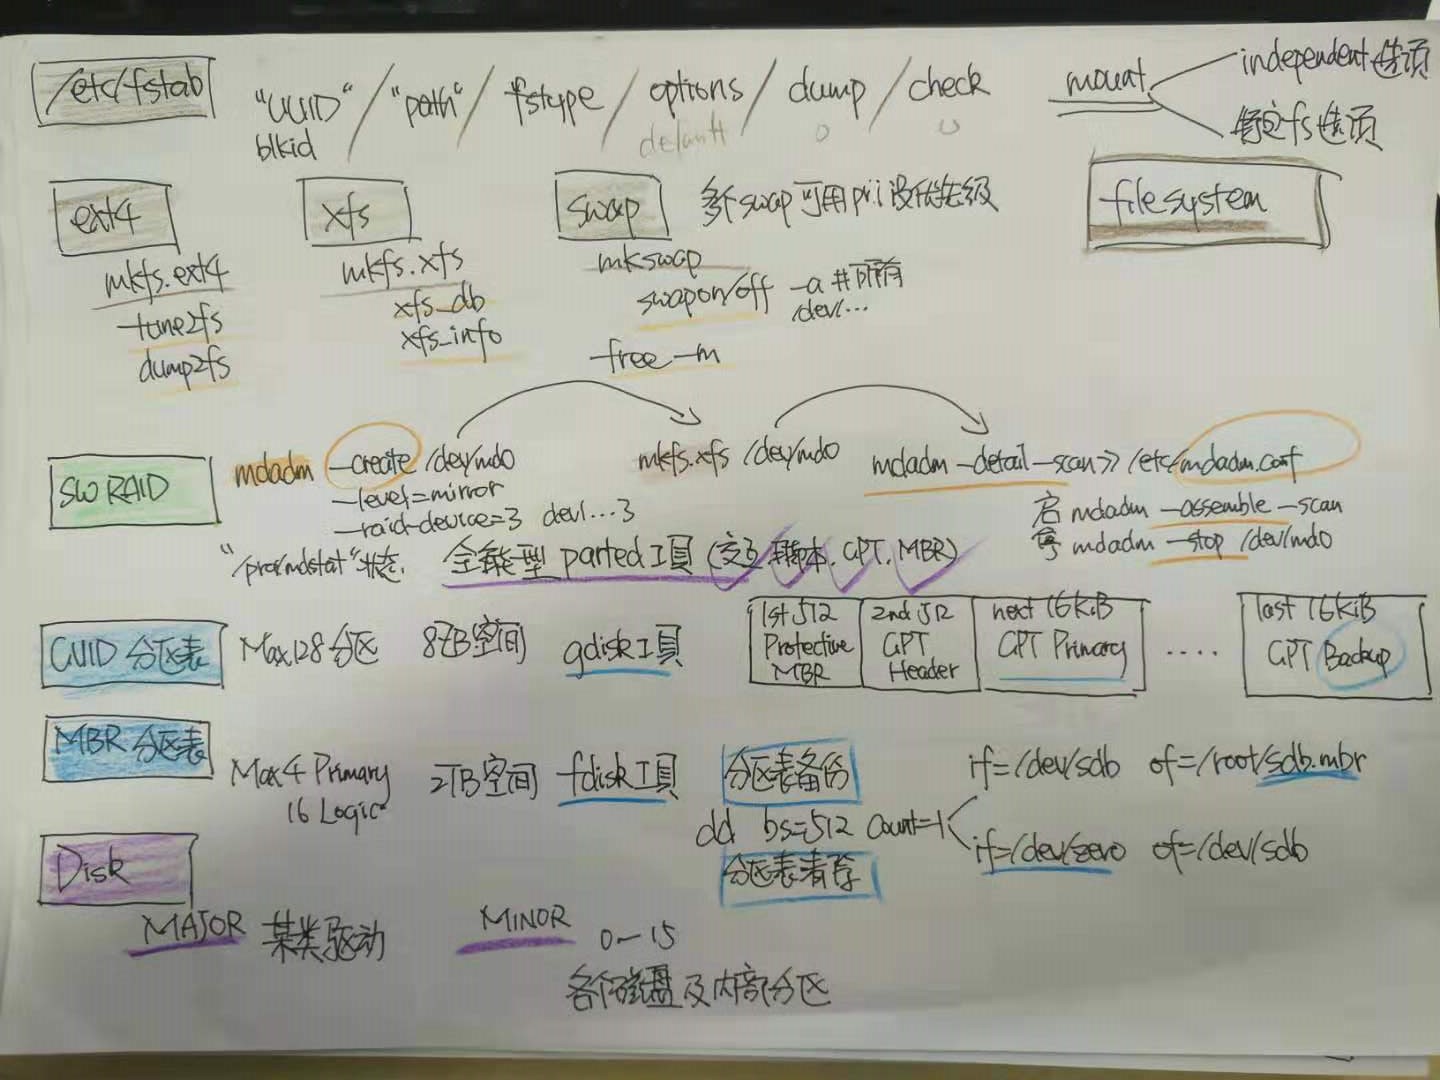 /etc/fstab
"UUID" / "path" / fstype / options / dump / check
blkid
default
0
0
mount
independent选项
特定fs选项
filesystem
ext4
mkfs.ext4
tune2fs
dump2fs
xfs
mkfs.xfs
xfs_db
xfs_info
swap
多个swap可用pri设优先级
mkswap
swapon/off -a #所有
/dev/...
free -m
SW RAID
mdadm -create /dev/md0
-level=mirror
-raid-device=3 dev1...3
mkfs.xfs /dev/md0
mdadm -detail -scan >> /etc/mdadm.conf
启 mdadm -assemble -scan
停 mdadm -stop /dev/md0
"/proc/mdstat"状态.
全能型parted工具(交互,脚本,GPT,MBR)
GUID 分区表
Max128分区
8ZB空间
gdisk工具
1st 512
Protective
MBR
2nd 512
GPT
Header
next 16KiB
GPT Primary
....
last 16KiB
GPT Backup
MBR 分区表
Max 4 Primary
16 Logic
2TB空间
fdisk工具
分区表备份
dd bs=512 count=1
if=/dev/sdb of=/root/sdb.mbr
if=/dev/zero of=/dev/sdb
分区表清除
Disk
MAJOR 某类驱动
MINOR 0-15
各个磁盘及内部分区